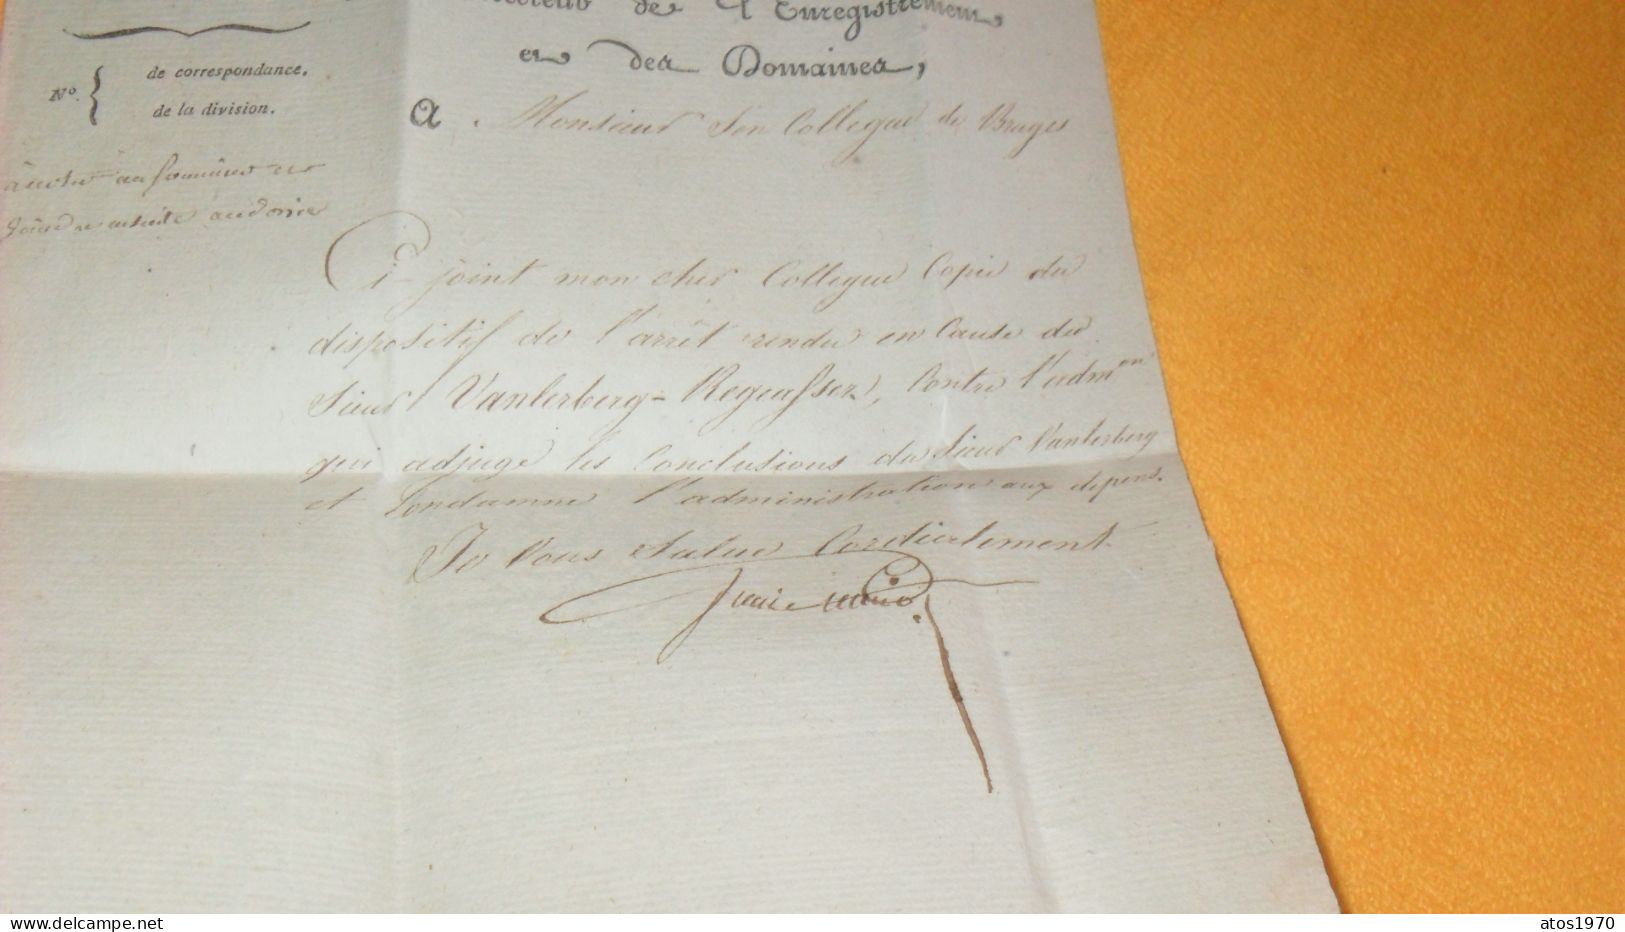 de l'Enregistrement,
et des Domaines,
N.º
de correspondance.
de la division.
A Monsieur Son Collegue de Bruges
Ci-joint mon cher Collegue Copie du
dispositif de l'arrêt rendu en Cause du
Sieur Vanlerberg-Regeasser, Contre l'admon
qui adjuge les Conclusions du Sieur Vanlerberg
et Condamne l'administration aux depens.
Je Vous Salue Cordialement
atos1970